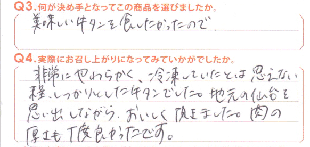 Q3.何が決め手となってこの商品を選びましたか。
美味しい牛タンを食したかったので
Q4.実際にお召し上がりになってみていかがでしたか。
非常にやわらかく、冷凍していたとは思えない
程、しっかりとした牛タンでした。地元の仙台を
思い出しながら、おいしく頂きました。肉の
厚さも丁度良かったです。